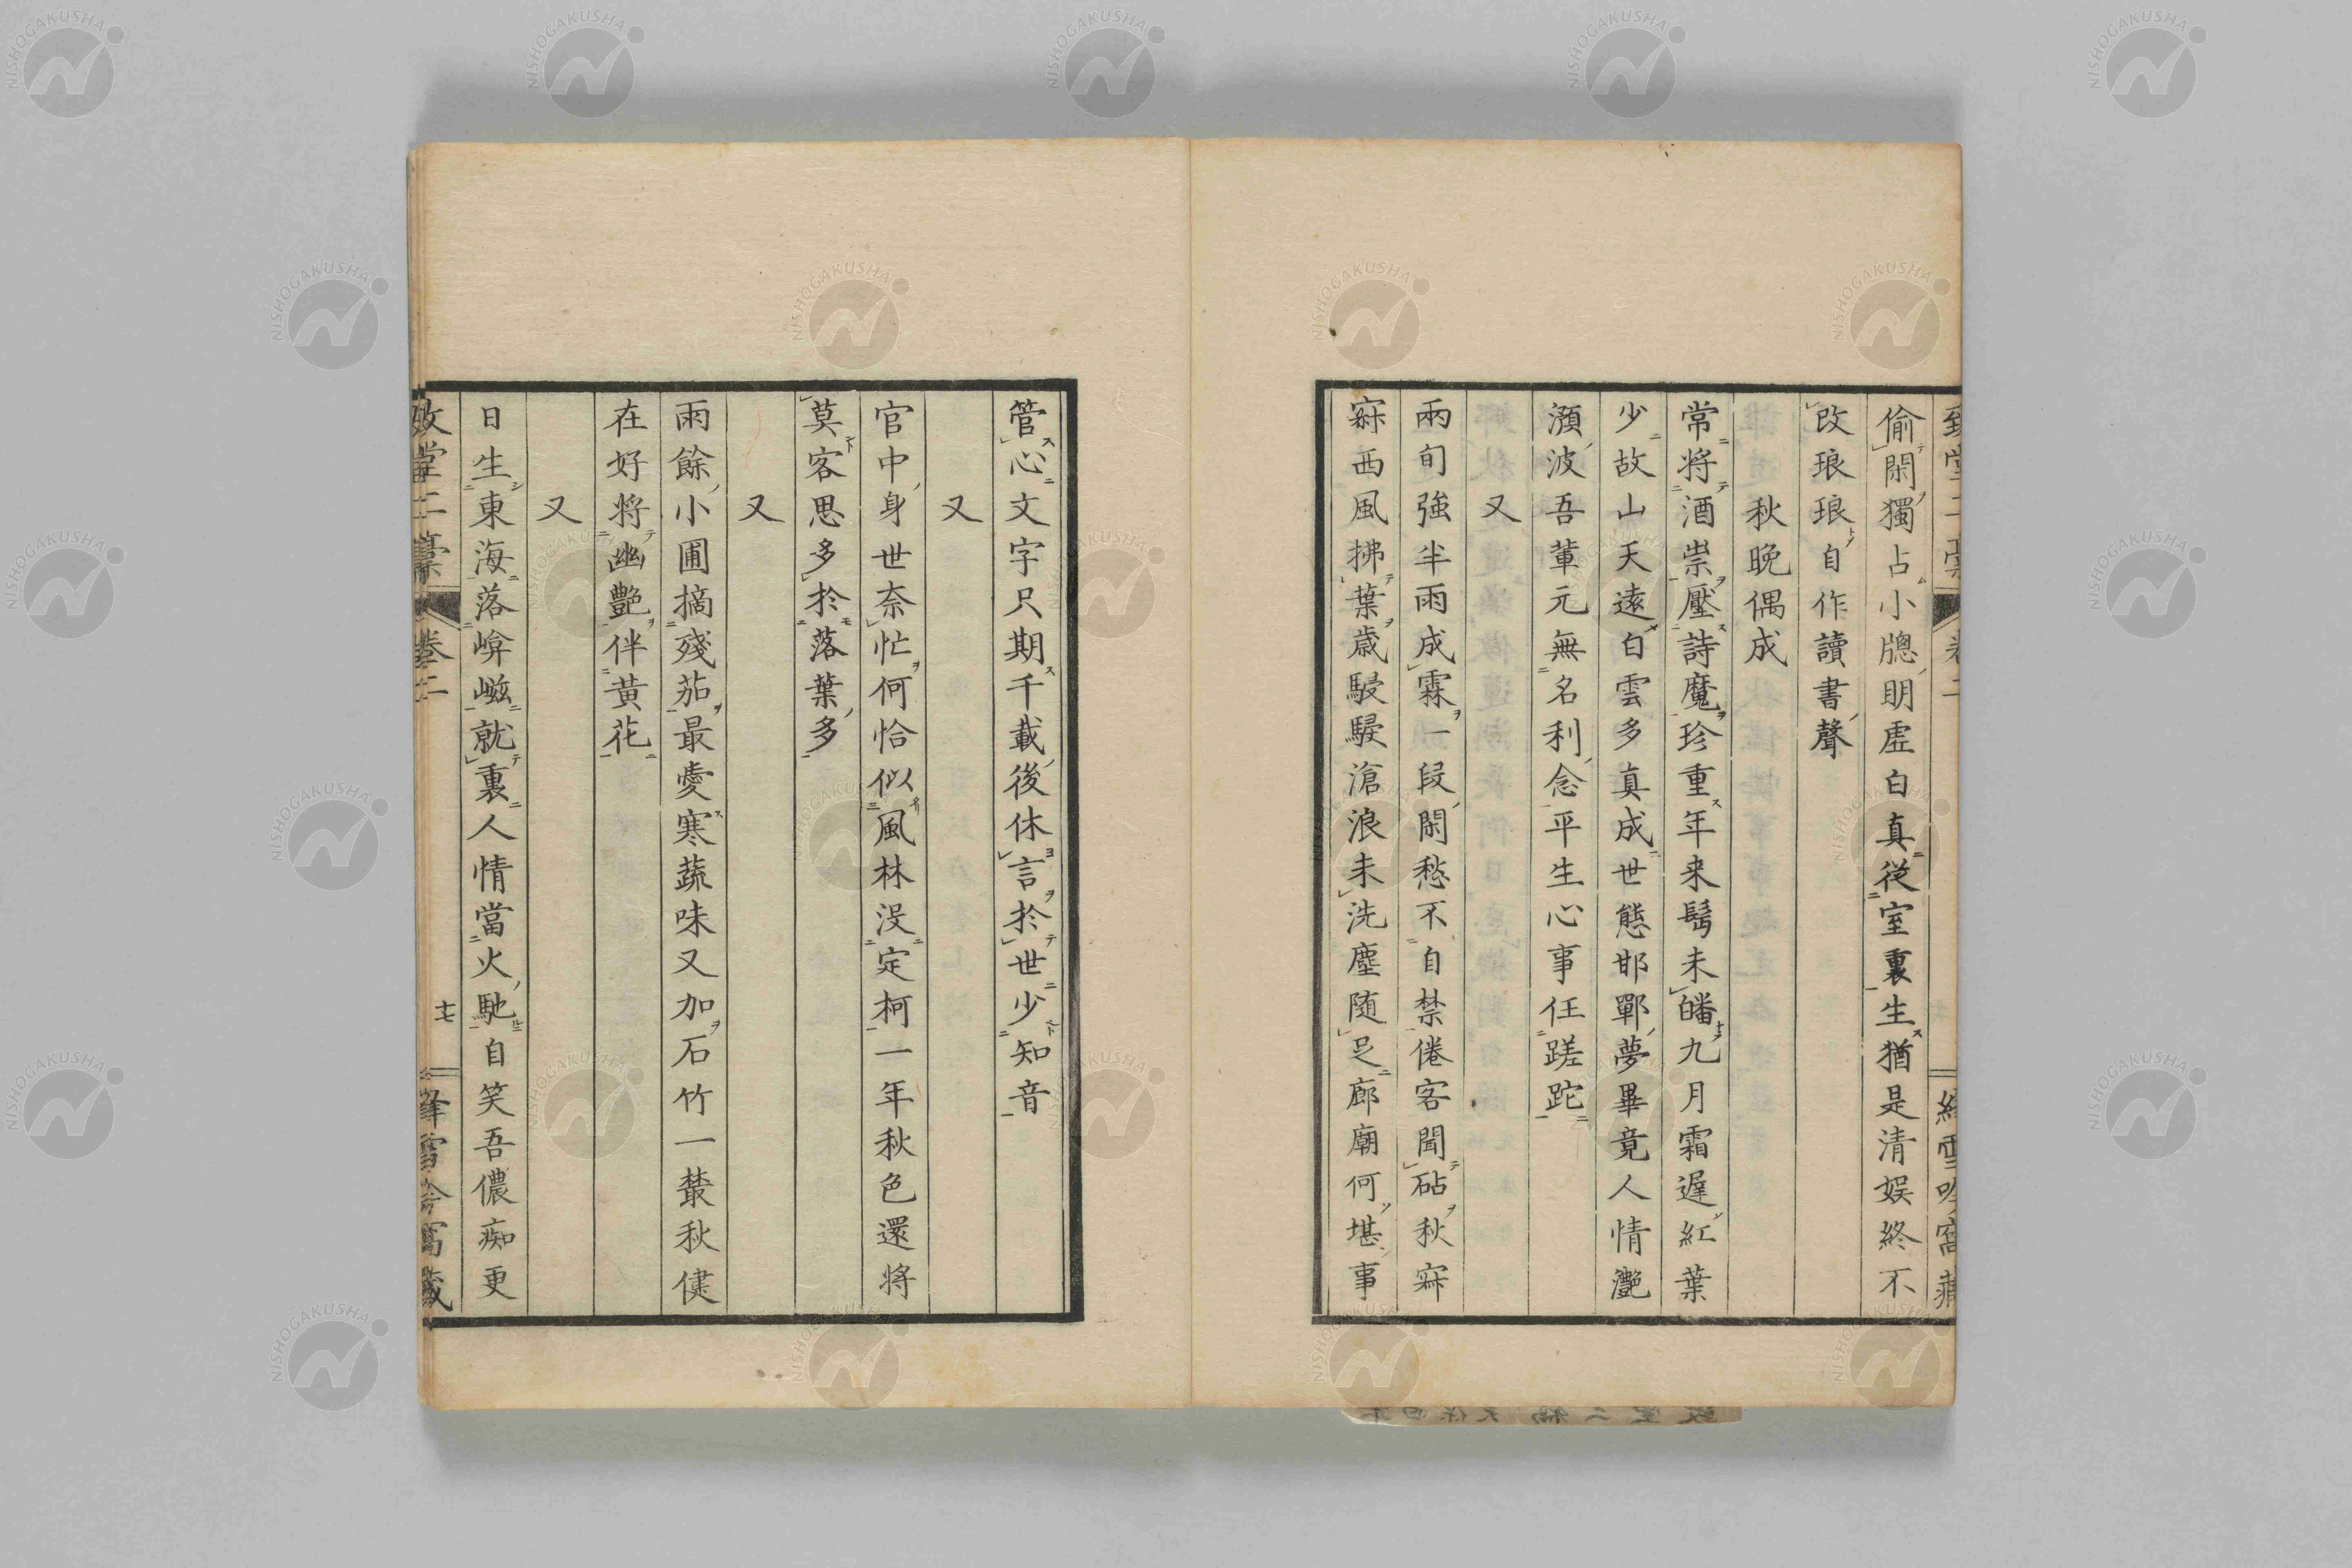 偷閑獨占小牕明虛白真從室裏生猶是清娯終不
改琅琅自作讀書聲
秋晩偶成
常將酒祟壓詩魔珍重年来髩未皤九月霜遲紅葉
少故山天遠白雲多真成世態邯鄲夢畢竟人情灔
澦波吾輩元無名利念平生心事任蹉跎
又
兩旬強半雨成霖一段閑愁不自禁倦客聞砧秋寂
寂西風拂葉歳駸駸滄浪未洗塵随足廊廟何堪事
管心文字只期千載後休言於世少知音
又
官中身世奈忙何恰似風林没定柯一年秋色還將
莫客思多於落葉多
又
雨餘小圃摘殘茄最愛寒蔬味又加石竹一叢秋健
在好將幽艷伴黄花
又
日生東海落崦嵫就裏人情當火馳自笑吾儂痴更
卷二
十七
NISHOGAKUSHA